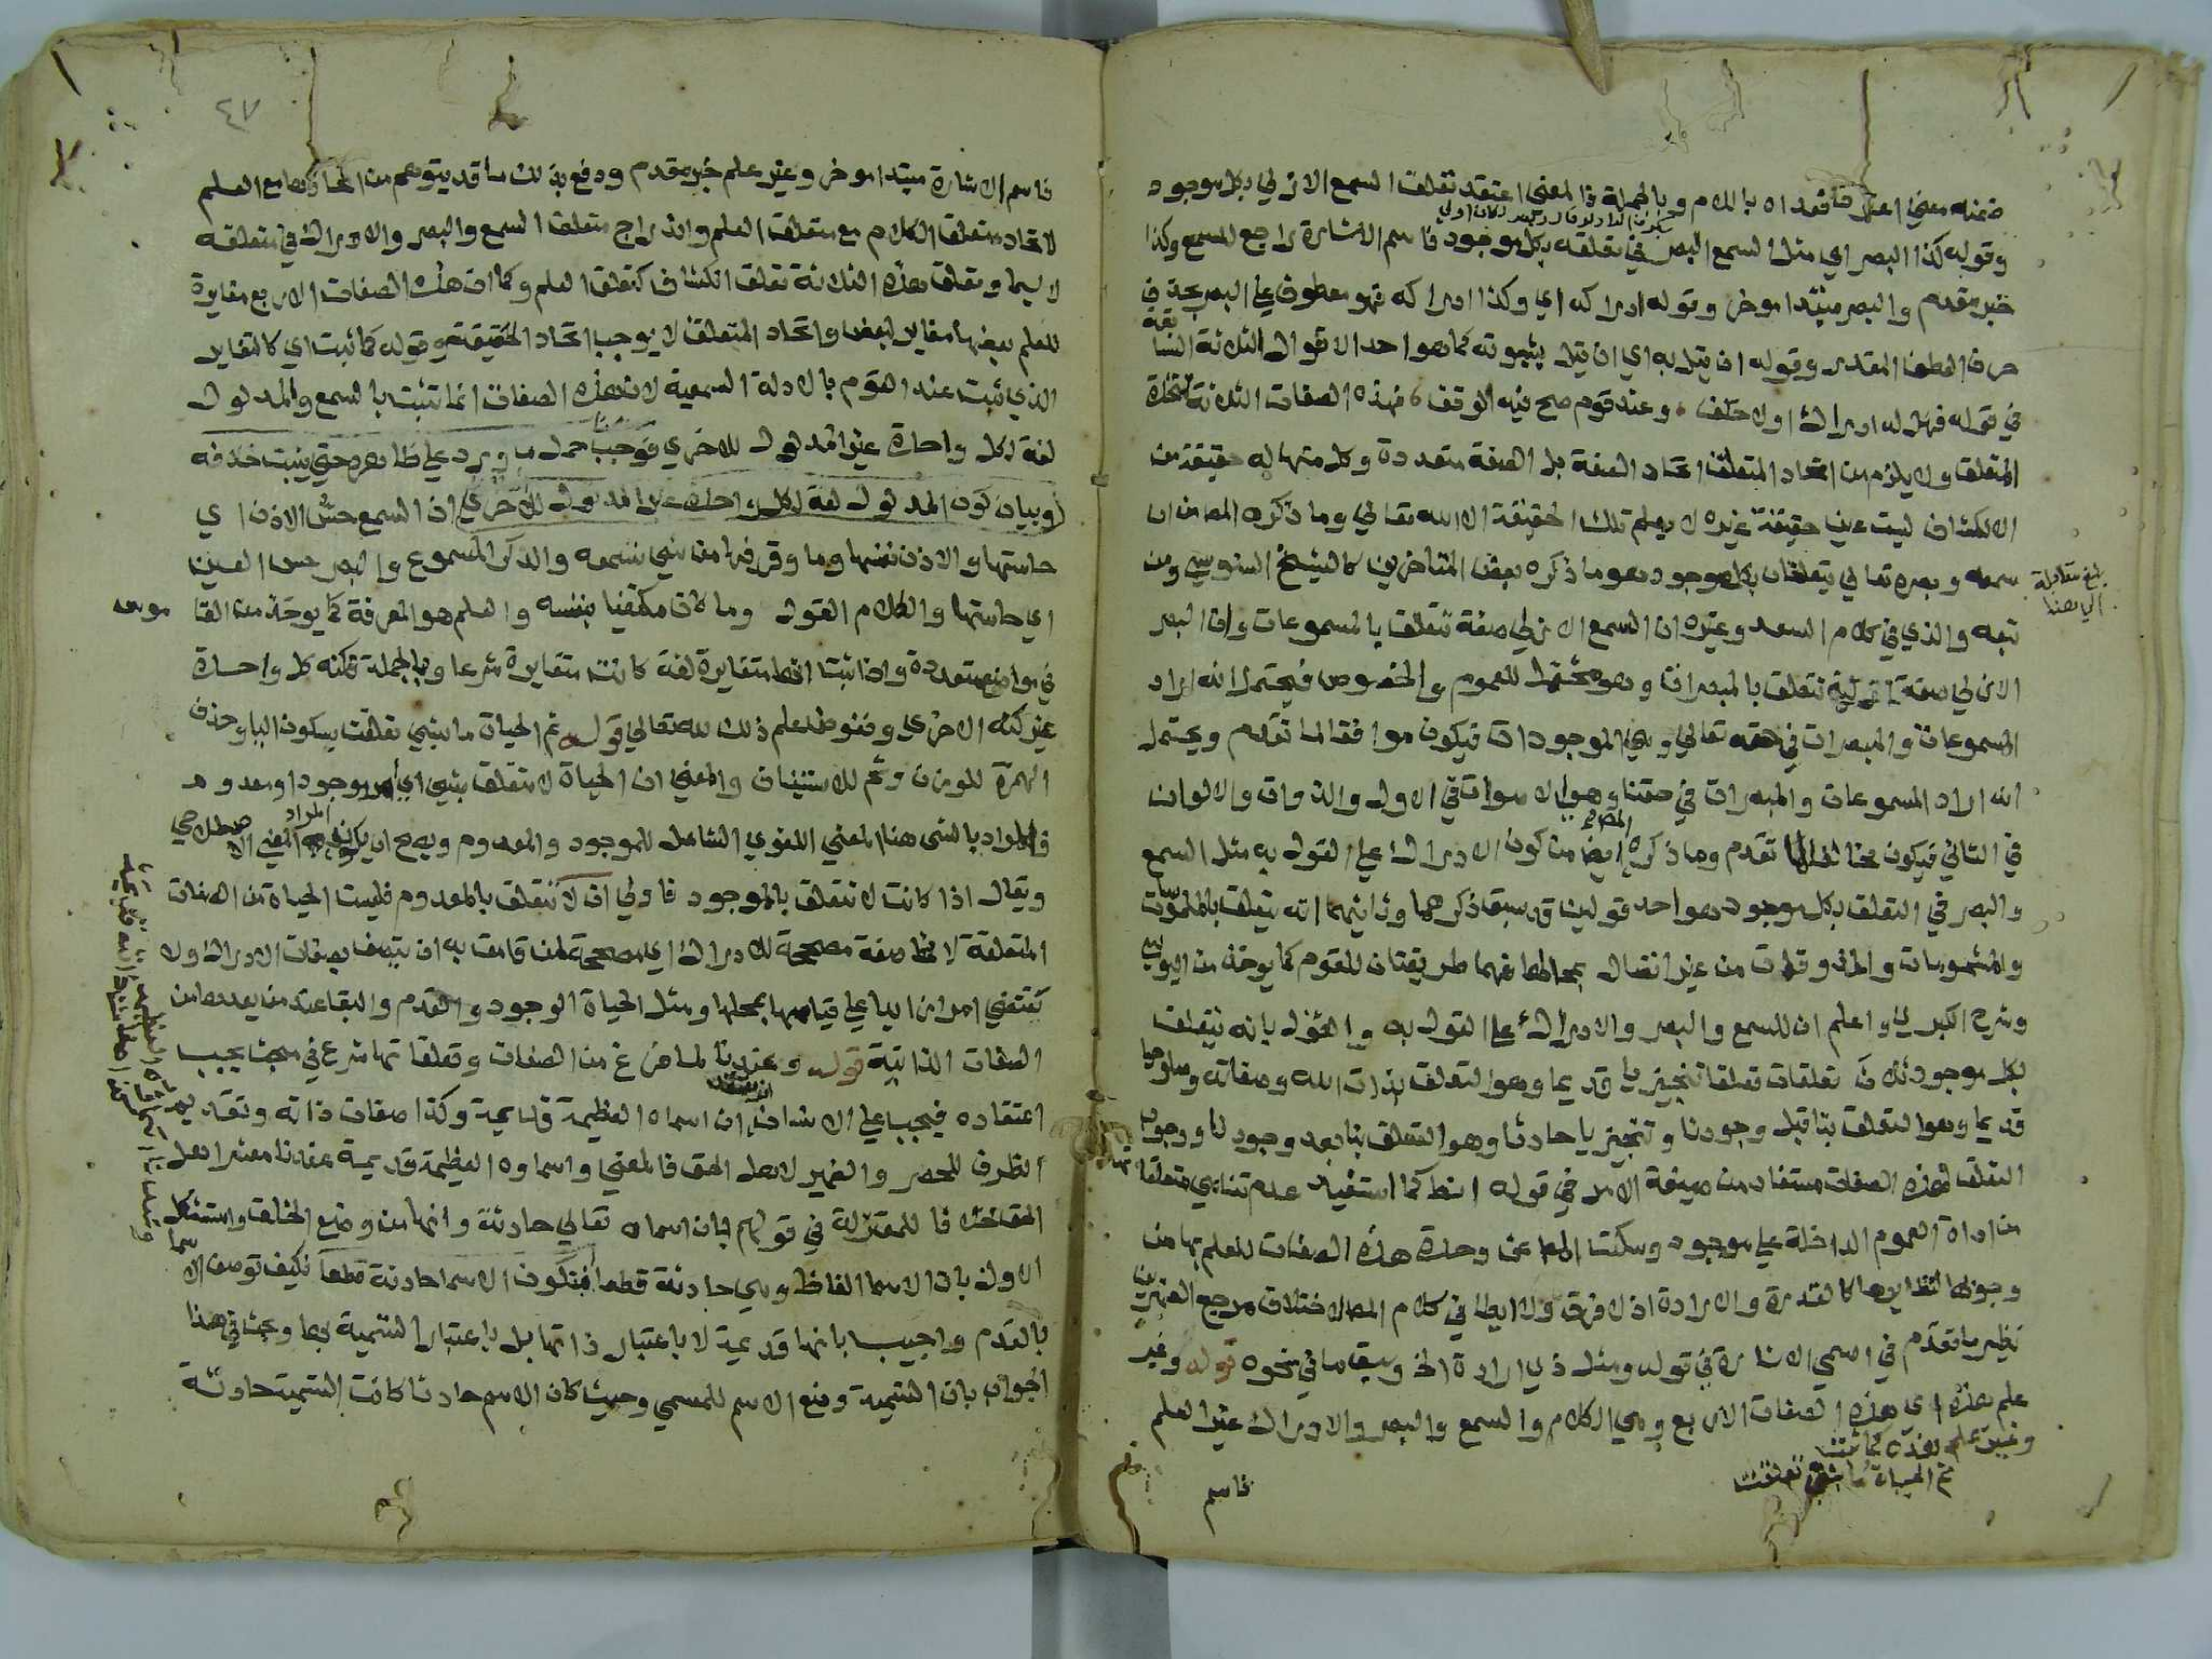 ضمنه معني اعتقد فعداه باللام وبالجملة ذا المعني اعتقد تعلقت السمع الازلي بكل موجود
وقوله كذا البصر اي مثل السمع البصر في تعلقه بكل موجود فاسم الاشارة راجع للسمع وكذا
خبر مقدم والبصر مبتدا موخر وقوله ادراكه اي وكذا ادراكه فهو معطوف علي البصر بحذف
حرف العطف المقدر وقوله ان قيل به اي ان قيل بثبوته كما هو احد الاقوال الثلاثة السابقة
في قوله فهل له ادراك اولا خلف وعند قوم صح فيه الوقف فهذه الصفات الثلاث متحدة
المتعلق ولا يلزم من اتحاد المتعلق اتحاد الصفة بل الصفة متعددة وكل منها له حقيقة من
الانكشاف ليست عين حقيقة غيره لا يعلم تلك الحقيقة الا الله تعالي وما ذكره المص من ان
سمعه وبصره تعالي يتعلقان بكل موجود هو ما ذكره بعض المتاخرين كالشيخ السنوسي ومن
بلغ مقابلة
الي هنا
تبعه والذي في كلام السعد وغيره ان السمع الازلي صفة تتعلق بالمسموعات وان البصر
الازلي صفة ازلية تتعلق بالمبصرات وهو محتمل للعموم والخصوص فيحتمل انه اراد
المسموعات والمبصرات في حقه تعالي وهي الموجودات فيكون موافقا لما تقدم ويحتمل
انه اراد المسموعات والمبصرات في حقنا وهو الاصوات في الاول والذوات والالوان
في الثاني فيكون مخالفا لما تقدم وما ذكره المص ايضا من كون الادراك علي القول به مثل السمع
والبصر في التعلق بكل موجود هو احد قولين قد سبق ذكرهما وثانيهما انه يتعلق بالملموسات
والمشمومات والمذوقات من غير اتصال بمحالها فهما طريقتان للقوم كما يوخذ من اليوسي
وشرح الكبري واعلم ان للسمع والبصر والادراك علي القول به والقول بانه يتعلق
بكل موجود ثلاث تعلقات تعلقا تنجيزيا قديما وهو التعلق بذات الله وصفاته وصلوحيا
قديما وهو التعلق بنا قبل وجودنا وتنجيزيا حادثا وهو التعلق بنا بعد وجودنا ووجوب
التعلق لهذه الصفات مستفاد من صيغة الامر في قوله انط كما استفيد عدم تناهي متعلقاتها
من اداة العموم الداخلة علي موجود وسكت المص عن وحدة هذه الصفات للعلم بها من
وجوبها لنظايرها كالقدرة والارادة اذ لا فرق ولا ايطا في كلام المص لاختلاف مرجع الضميرين
نظير ما تقدم في اسمي الاشارة في قوله ومثل ذي ارادة الخ وسبق ما في نحوه قوله وغير
علم هذه اي هذه الصفات الاربع وهي الكلام والسمع والبصر والادراك غير العلم
وغير علم هذه كما ثبت
ثم الحياة ما بشي تعلقت
فاسم
٤٧
فاسم الاشارة مبتدا موخر وغير علم خبر مقدم ودفع بذلك ما قد يتوهم من اتحادها مع العلم
لاتحاد متعلق الكلام مع متعلق العلم واندراج متعلق السمع والبصر والادراك في متعلقه
لا سيما وتعلق هذه الثلاثة تعلق انكشاف كتعلق العلم وكما ان هذه الصفات الاربع مغايرة
للعلم بعضها مغاير لبعض واتحاد المتعلق لا يوجب اتحاد الحقيقة وقوله كما ثبت اي كالتغاير
الذي ثبت عند القوم بالادلة السمعية لان هذه الصفات انما تثبت بالسمع والمدلول
لغة لكل واحدة غير المدلول للاخري فوجب حمل ما ورد علي ظاهره حتي يثبت خلافه
وبيان كون المدلول لغة لكل واحدة غير المدلول للاخري ان السمع حس الاذن اي
حاستها والاذن نفسها وما وقر فيها من شي تسمعه والذكر المسموع والبصر حس العين
اي حاستها والكلام القول وما كان مكتفيا بنفسه والعلم هو المعرفة كما يوخذ من القاموس
في مواضع متعددة واذا ثبت انها متغايرة لغة كانت متغايرة شرعا وبالجملة فكنه كل واحدة
غير كنه الاخري ونفوض علم ذلك لله تعالي قوله ثم الحياة ما بشي تعلقت بسكون اليا وحذف
الهمزة للوزن وثم للاستيناف والمعني ان الحياة لا تتعلق بشي اي امر موجود او معدوم
فالمراد بالشي هنا المعني اللغوي الشامل للموجود والمعدوم ويصح ان يكون المراد به المعني الاصطلاحي
ويقال اذا كانت لا تتعلق بالموجود فاولي ان لا تتعلق بالمعدوم فليست الحياة من الصفات
المتعلقة لانها صفة مصححة للادراك اي مصححة لمن قامت به ان يتصف بصفات الادراك ولا
تقتضي امرا زايدا علي قيامها بمحلها ومثل الحياة الوجود والقدم والبقا عند من يعدها من
الصفات الذاتية قوله وعندنا لما فرغ من الصفات وتعلقاتها شرع في مبحث يجب
اعتقاده فيجب علي الانسان ان يعتقد ان اسماه العظيمة قديمة وكذا صفات ذاته وتقديم
الظرف للحصر والضمير لاهل الحق فالمعني واسماوه العظيمة قديمة عندنا معشر اهل
الحق خلافا للمعتزلة في قولهم بان اسماه تعالي حادثة وانها من وضع الخلق واستشكل
الاول بان الاسما الفاظ وهي حادثة قطعا فتكون الاسما حادثة قطعا فكيف توصف الاسما
بالقدم واجيب بانها قديمة لا باعتبار ذاتها بل باعتبار التسمية بها وبحث في هذا
الجواب بان التسمية وضع الاسم للمسمي وحيث كان الاسم حادثا كانت التسمية حادثة